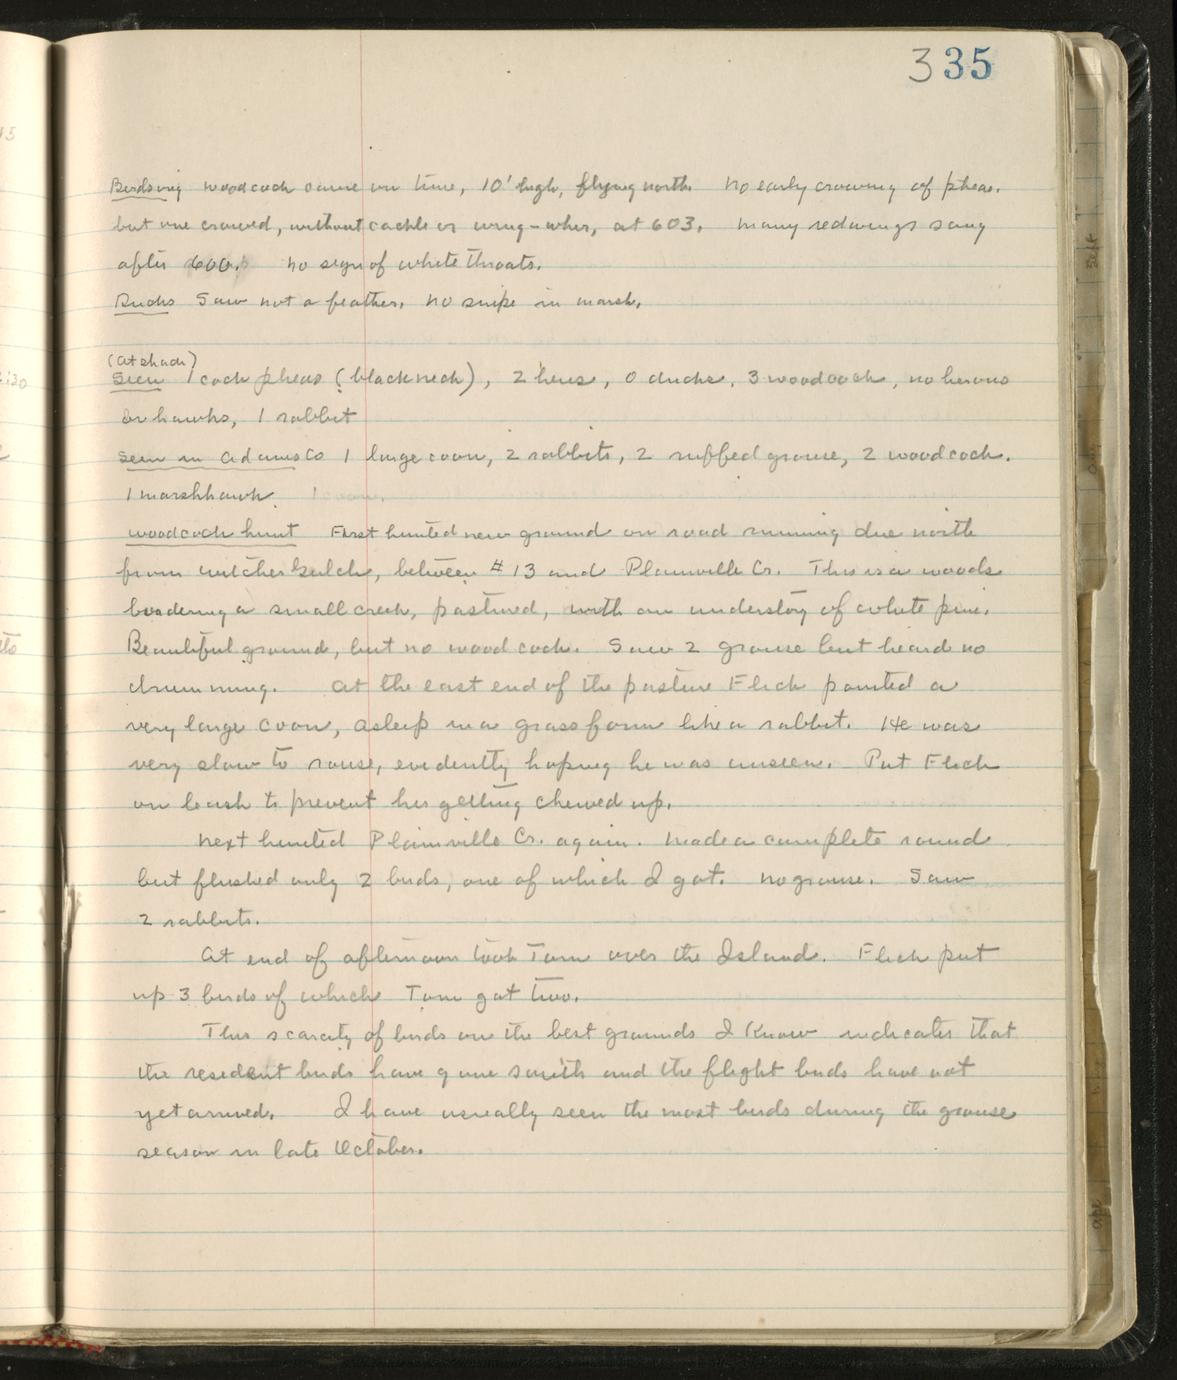 335
Birdsong woodcock came on time, 10' high, flying north. No early crowing of pheas.
but one crowed, without cackle or wing-whir, at 603. Many redwings sang
after 600. No sign of whitethroats.
Ducks Saw not a feather. No snipe in marsh.
(at shack)
Seen 1 cock pheas (blackneck), 2 hens, 0 ducks, 3 woodcock, no herons
or hawks, 1 rabbit
Seen in Adams Co 1 large coon, 2 rabbits, 2 ruffed grouse, 2 woodcock.
1 marshhawk.
Woodcock hunt First hunted new ground on road running due north
from Witches Gulch, between #13 and Plainville Cr. This is a woods
bordering a small creek, pastured, with an understory of white pine.
Beautiful ground, but no woodcock. Saw 2 grouse but heard no
drumming. At the east end of the pasture Flick pointed a
very large coon, asleep in a grass form like a rabbit. He was
very slow to rouse, evidently hoping he was unseen. Put Flick
on leash to prevent his getting chewed up.
Next hunted Plainville Cr. again. Made a complete round
but flushed only 2 birds, one of which I got. No grouse. Saw
2 rabbits.
At end of afternoon took Tom over the Island. Flick put
up 3 birds of which Tom got two.
This scarcity of birds on the best grounds I know indicates that
the resident birds have gone south and the flight birds have not
yet arrived. I have usually seen the most birds during the grouse
season in late October.